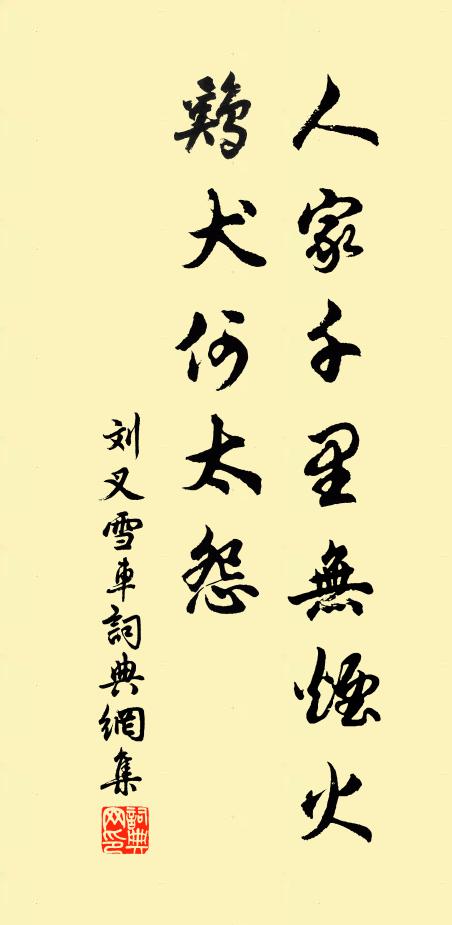 人家千里無煙火
鷄犬何太怨
刘叉雪車詞典網集
詞典网印